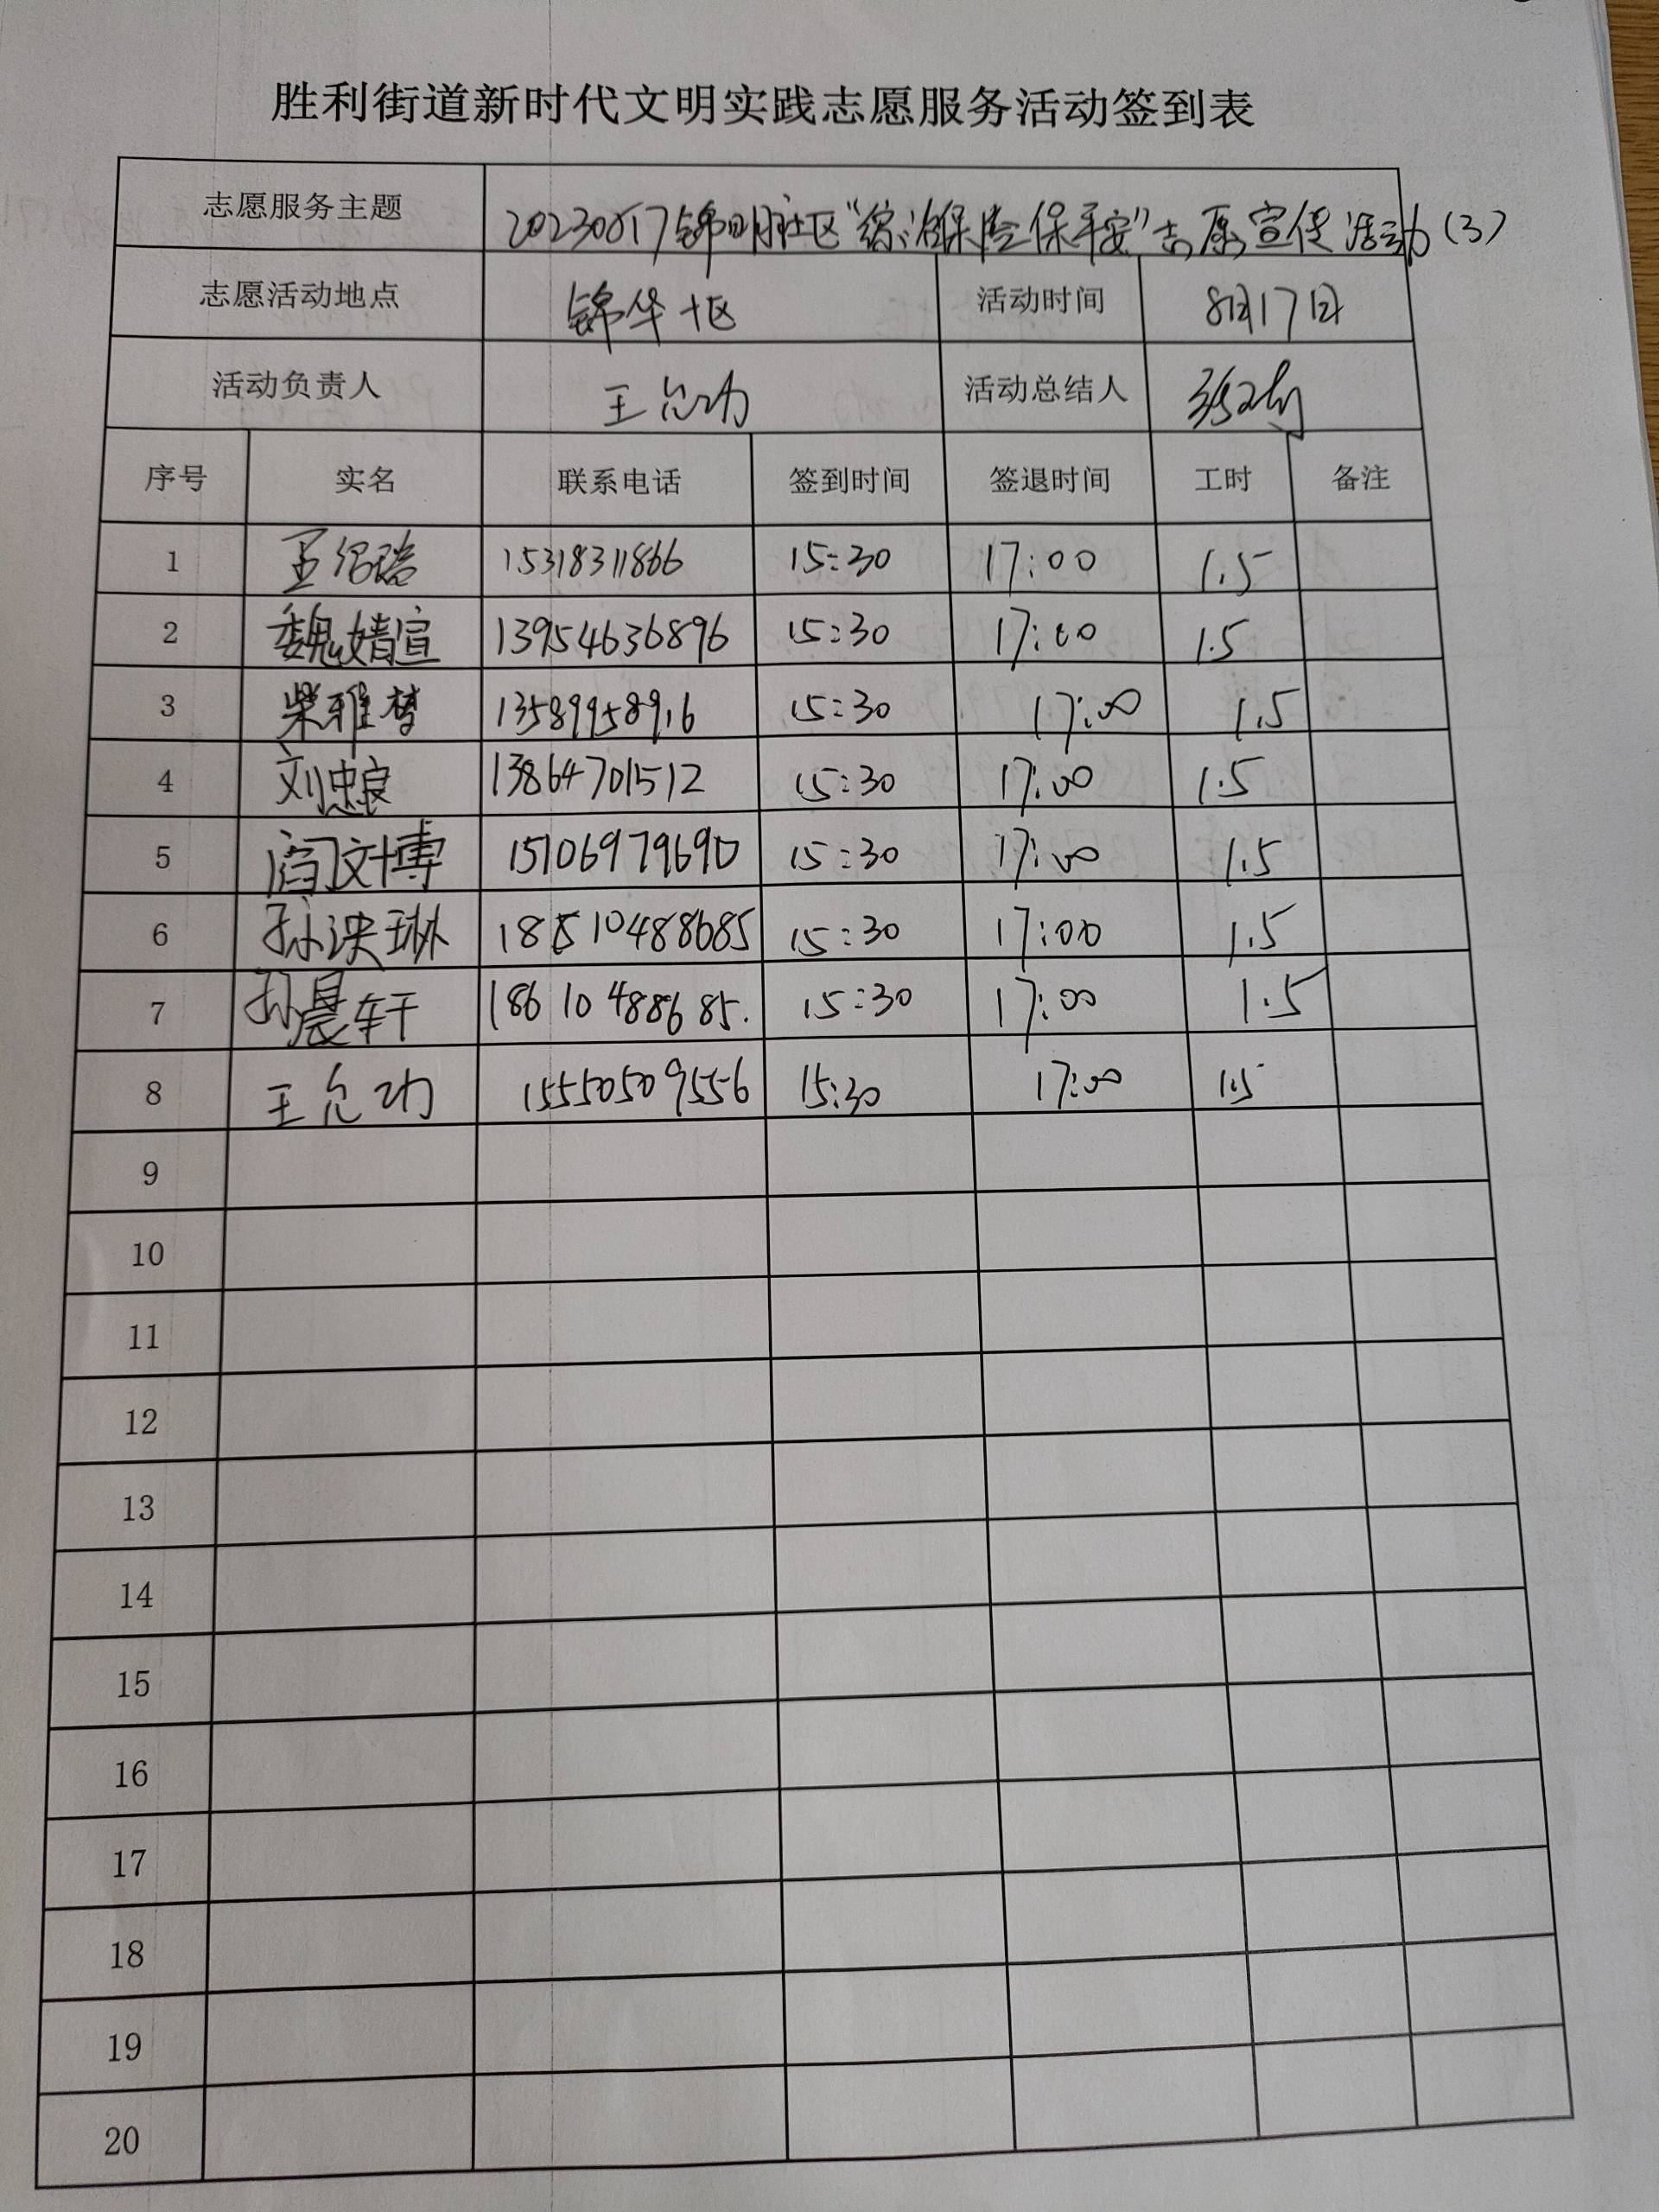 胜利街道新时代文明实践志愿服务活动签到表
志愿服务主题 20230817锦明社区“综治保险保平安”志愿宣传活动(3)
志愿活动地点 锦华十区 活动时间 8月17日
活动负责人 王 功 活动总结人
序号 实名 联系电话 签到时间 签退时间 工时 备注
1 15318311866 15:30 17:00 1.5
2 魏婧宣 13954636896 15:30 17:00 1.5
3 柴雅梦 15:30 17:00 1.5
4 刘忠良 13864701512 15:30 17:00 1.5
5 阎文博 15106979690 15:30 17:00 1.5
6 孙泱琳 15:30 17:00 1.5
7 孙晨轩 18610488685. 15:30 17:00 1.5
8 王 功 15550509556 15:30 17:00 1.5
9
10
11
12
13
14
15
16
17
18
19
20